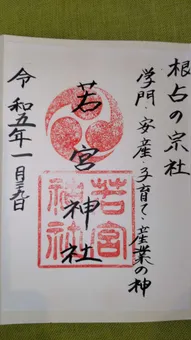 根占の宗社
学門・安産・子育て・産業の神
若宮神社
若宮
神社
令和五年一月三九日